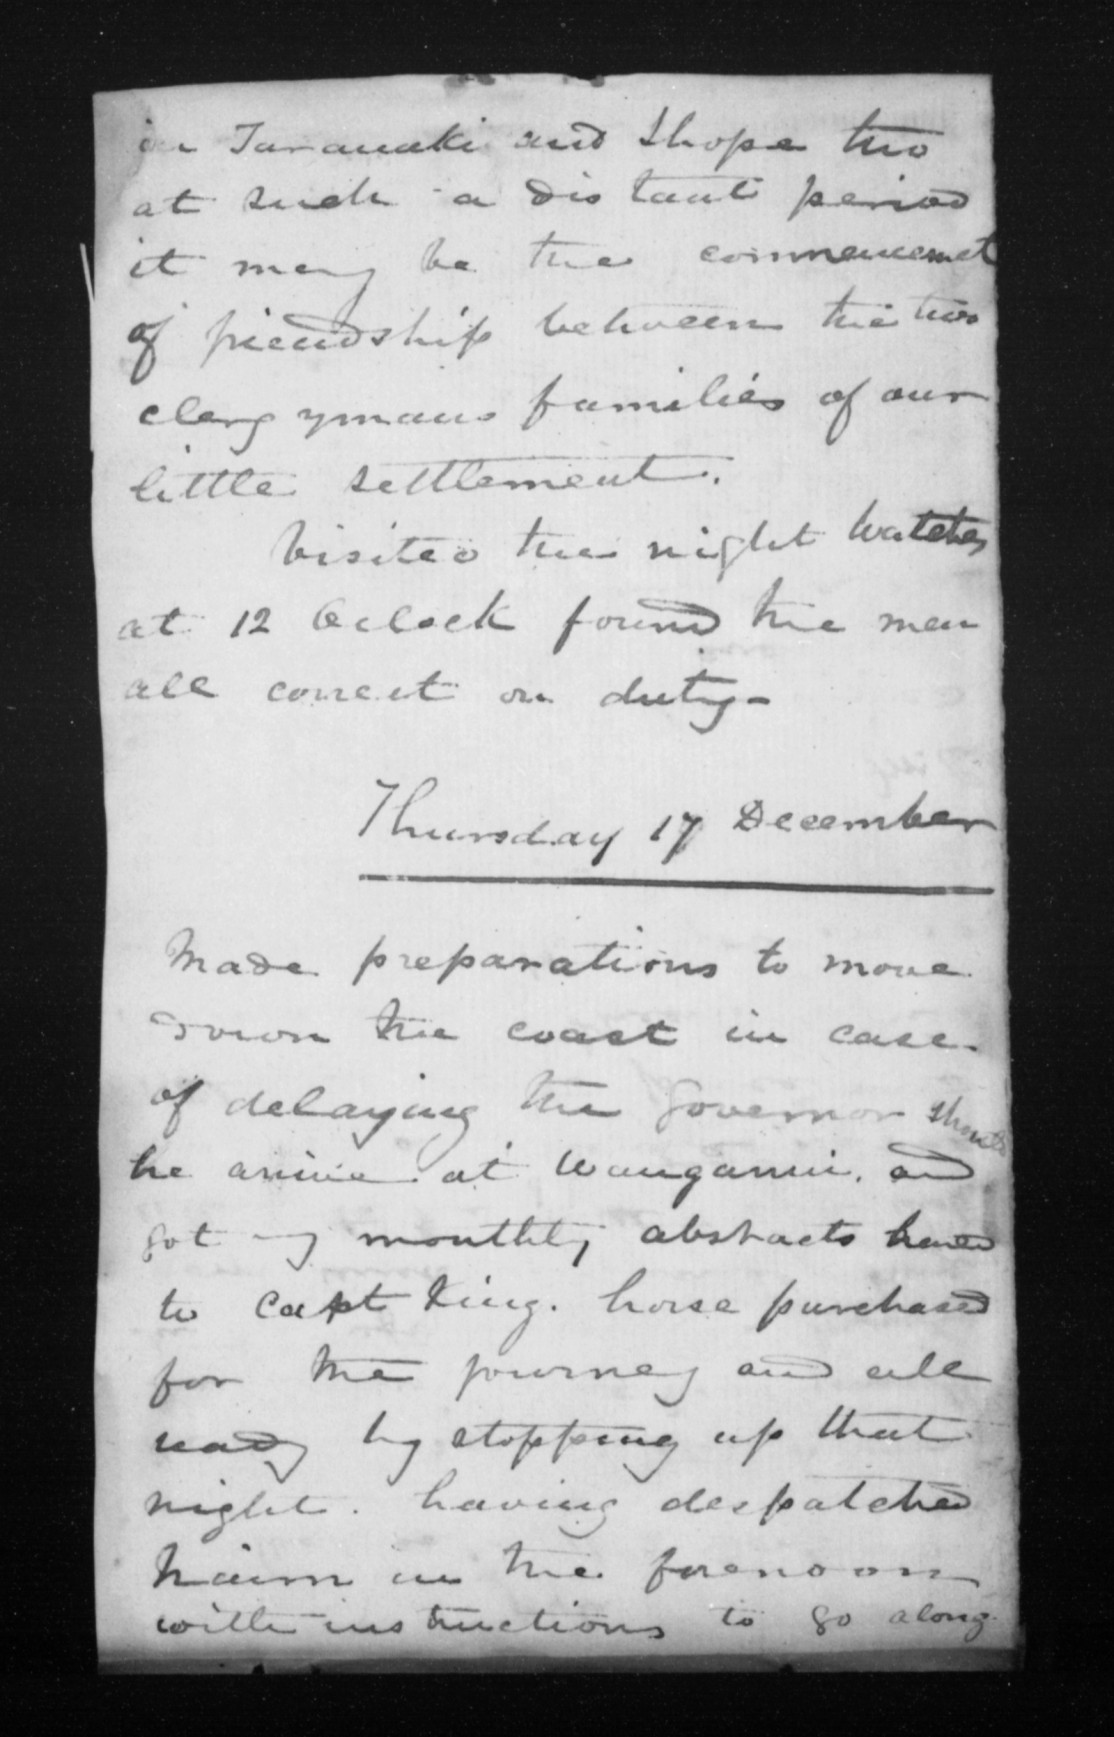 in Taranaki and I hope tho
at such a distant period
it may be the commencemet
of friendship between the two
clergymans families of our
little settlement.
Visited the night Watches
at 12 Oclock found the men
all correct on duty -
Thursday 17 December
Made preparations to move
down the coast in case
of delaying the Governor should
he arrive at Wanganui. and
got my monthly abstracts
to Capt King. horse purchased
for the journey and all
ready by stopping up that
night. having despatched
in the forenoon
with instructions to go along